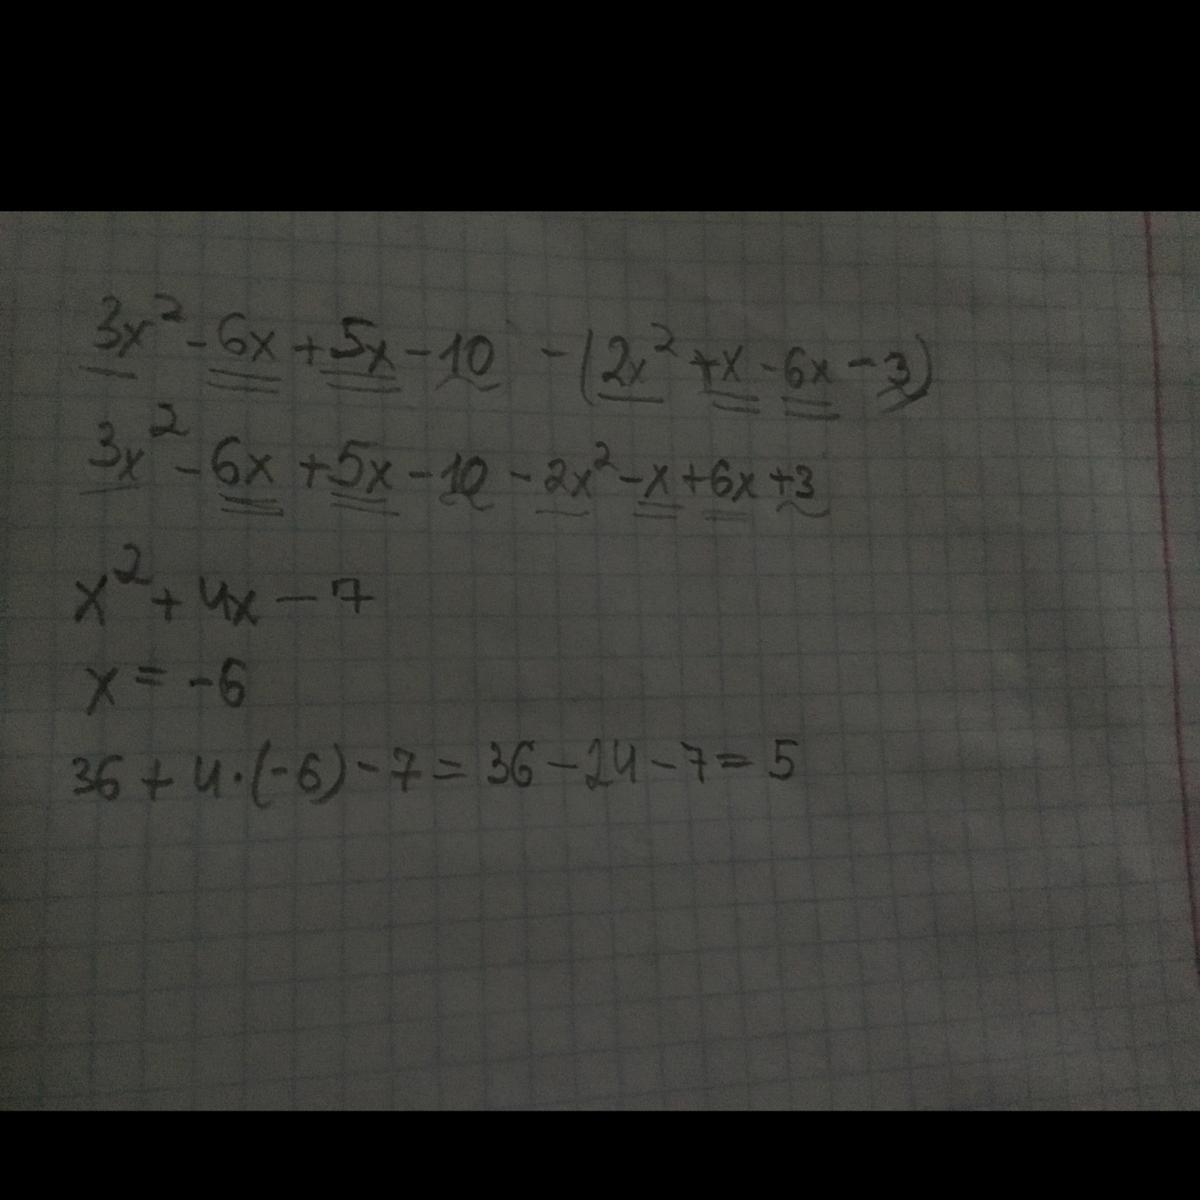 3x² - 6x + 5x - 10 - (2x² + x - 6x - 3)
3x² - 6x + 5x - 10 - 2x² - x + 6x + 3
x² + 4x - 7
x = -6
36 + 4·(-6) - 7 = 36 - 24 - 7 = 5